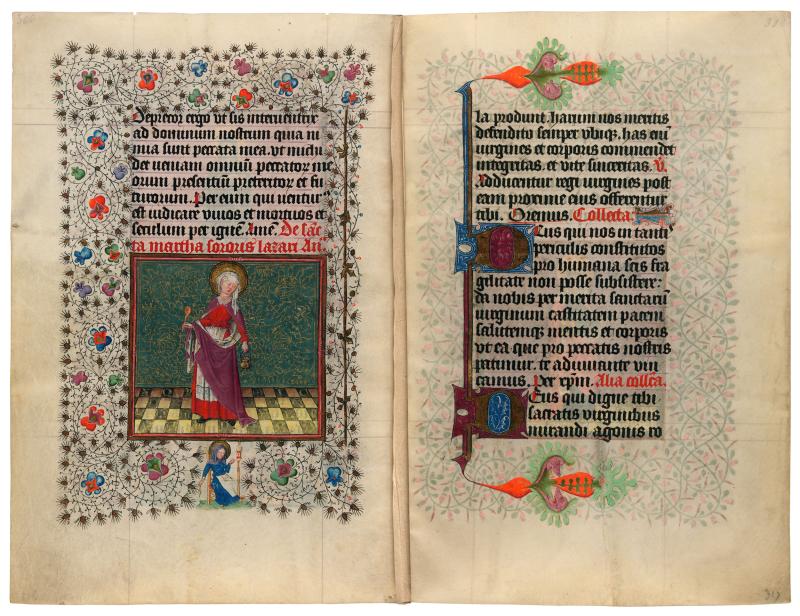 Deprecor ergo vt sis interuentrix
ad dominum nostrum quia ni
mia sunt peccata mea. vt michi
det ueniam omniū peccatoꝝ me
orum presentiū preteritoꝝ et fu
turorum. Per eum qui uentur9
est iudicare viuos et mortuos et
seculum per ignē. Amē. De sāc
ta martha sororis lazari Añ.
la produnt. harum nos meritis
defendito semper vbiqȝ. has eni
uirgines et corporis commendet
integritas. et vite sinceritas. V.
Adducentur regi uirgines post
eam proxime eius offerentur
tibi. Oremus. Collecta.
Deus qui nos in tanti
periculis constitutos
pro humana scis fra
gilitate non posse subsistere:
da nobis per merita sanctarū
uirginum castitatem pariter
salutemqȝ mentis et corporis
vt ea que pro peccatis nostris
patimur. te adiuuante vin
camus. Per xp̄m. Alia collc̄a.
Deus qui digne tibi
sacratis uirginibus
mirandi agonis ro
317